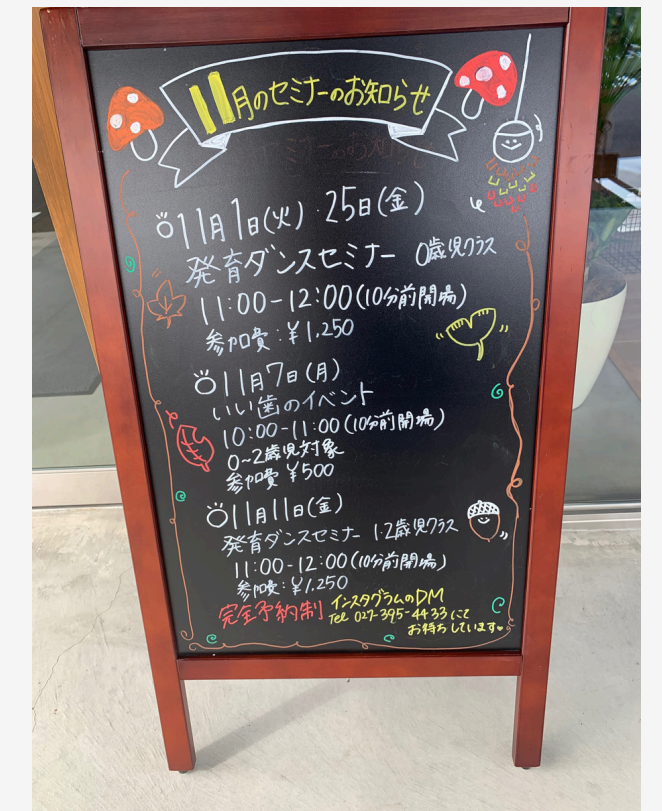 11月のセミナーのお知らせ
11月1日(火)・25日(金)
発育ダンスセミナー 0歳児クラス
11:00-12:00(10分前開場)
参加費:¥1,250
11月7日(月)
いい歯のイベント
10:00-11:00(10分前開場)
0~2歳児対象
参加費 ¥500
11月11日(金)
発育ダンスセミナー 1・2歳児クラス
11:00-12:00(10分前開場)
参加費:¥1,250
完全予約制
インスタグラムのDM
Tel 027-395-4433にて
お待ちしています♥